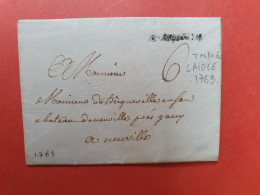 6
TAXE 6
LAIGLE
1769
A Monsieur
Monsieur de Becqueville en son
chateau deneuville prés gacey
a neuville
1769